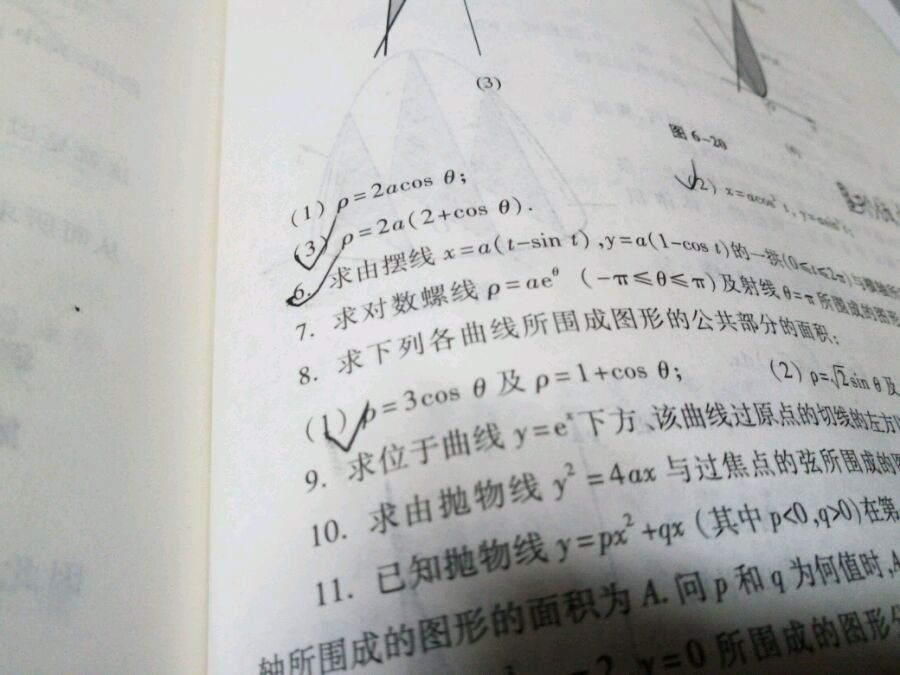 (3)
图 6-20
(1) ρ=2acos θ;
(2) x=acos³t, y=asin³t;
(3) ρ=2a(2+cos θ).
6. 求由摆线 x=a(t-sin t),y=a(1-cos t)的一拱(0≤t≤2π)与
7. 求对数螺线 ρ=ae^θ (-π≤θ≤π)及射线 θ=π 所围成的图形
8. 求下列各曲线所围成图形的公共部分的面积:
(1) ρ=3cos θ 及 ρ=1+cos θ; (2) ρ=√2sin θ 及
9. 求位于曲线 y=e^x 下方、该曲线过原点的切线的左方
10. 求由抛物线 y²=4ax 与过焦点的弦所围成的图
11. 已知抛物线 y=px²+qx (其中 p<0,q>0)在第
轴所围成的图形的面积为 A. 问 p 和 q 为何值时,A
=2, y=0 所围成的图形